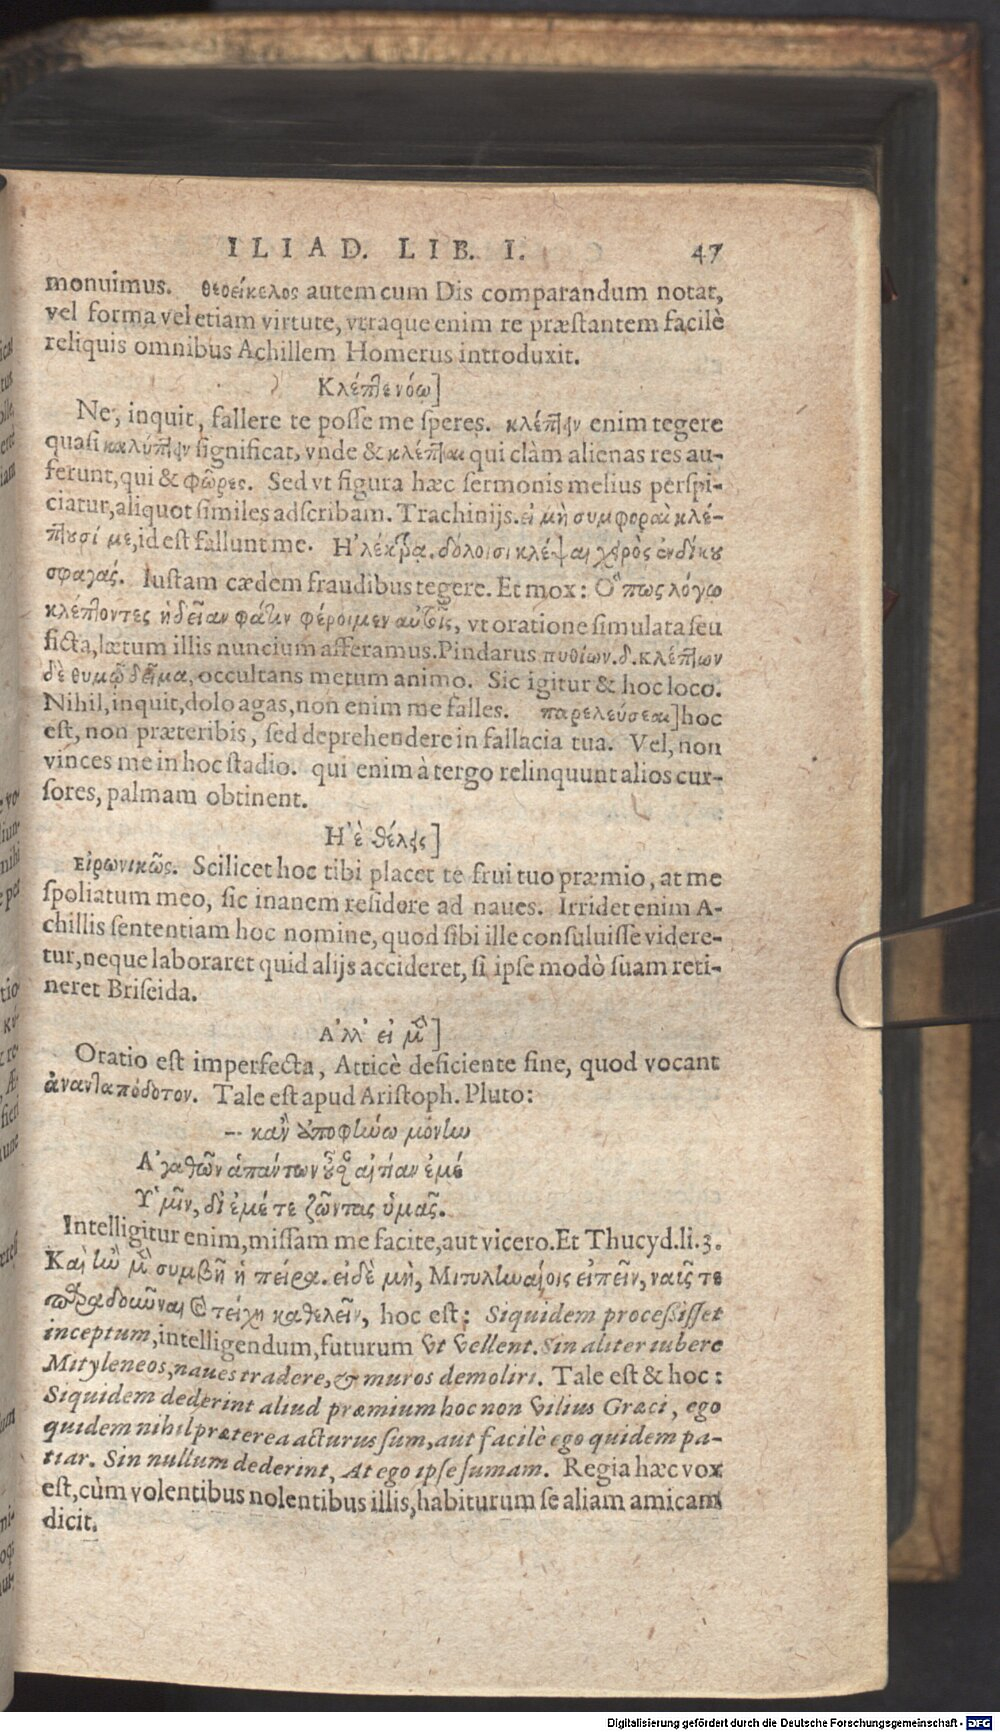 ILIAD. LIB. I. 47
monuimus. θεοείκελος autem cum Dis comparandum notat,
vel forma vel etiam virtute, vtraque enim re præstantem facilè
reliquis omnibus Achillem Homerus introduxit.
Κλέπτε νόῳ]
Ne, inquit, fallere te posse me speres. κλέπτειν enim tegere
quasi καλύπτειν significat, vnde & κλέπται qui clàm alienas res au-
ferunt, qui & φῶρες. Sed vt figura hæc sermonis melius perspi-
ciatur, aliquot similes adscribam. Trachinijs. εἰ μὴ συμφοραὶ κλέ-
πτουσί με, id est fallunt me. Ηλέκτρα. δόλοισι κλέψαι χειρὸς ἐνδίκου
σφαγάς. Iustam cædem fraudibus tegere. Et mox: Ὅπως λόγῳ
κλέπτοντες ἡδεῖαν φάτιν φέροιμεν αὐτοῖς, vt oratione simulata seu
ficta, lætum illis nuncium afferamus. Pindarus πυθίων. δ. κλέπτων
δὲ θυμῷ δεῖμα, occultans metum animo. Sic igitur & hoc loco.
Nihil, inquit, dolo agas, non enim me falles. παρελεύσεαι] hoc
est, non præteribis, sed deprehendere in fallacia tua. Vel, non
vinces me in hoc stadio. qui enim à tergo relinquunt alios cur-
sores, palmam obtinent.
Ἠ ἐθέλεις]
εἰρωνικῶς. Scilicet hoc tibi placet te frui tuo præmio, at me
spoliatum meo, sic inanem residere ad naues. Irridet enim A-
chillis sententiam hoc nomine, quod sibi ille consuluisse videre-
tur, neque laboraret quid alijs accideret, si ipse modò suam reti-
neret Briseida.
Ἀλλ' εἰ μὲν]
Oratio est imperfecta, Atticè deficiente fine, quod vocant
ἀνανταπόδοτον. Tale est apud Aristoph. Pluto:
-- κἂν ἀποφήνω μόνην
Ἀγαθῶν ἁπάντων οὖσαν αἰτίαν ἐμέ
Ὑμῖν, δι' ἐμέ τε ζῶντας ὑμᾶς.
Intelligitur enim, missam me facite, aut vicero. Et Thucyd. li. 3.
Καὶ ἢν μὲν συμβῇ ἡ πείρα. εἰ δὲ μὴ, Μιτυληναίοις εἰπεῖν, ναῦς τε
παραδοῦναι καὶ τείχη καθελεῖν, hoc est: Siquidem processisset
inceptum, intelligendum, futurum vt vellent. Sin aliter iubere
Mityleneos, naues tradere, & muros demoliri. Tale est & hoc:
Siquidem dederint aliud præmium hoc non vilius Græci, ego
quidem nihil præterea acturus sum, aut facilè ego quidem pa-
tiar. Sin nullum dederint, At ego ipse sumam. Regia hæc vox
est, cùm volentibus nolentibus illis, habiturum se aliam amicam
dicit.
Digitalisierung gefördert durch die Deutsche Forschungsgemeinschaft - DFG